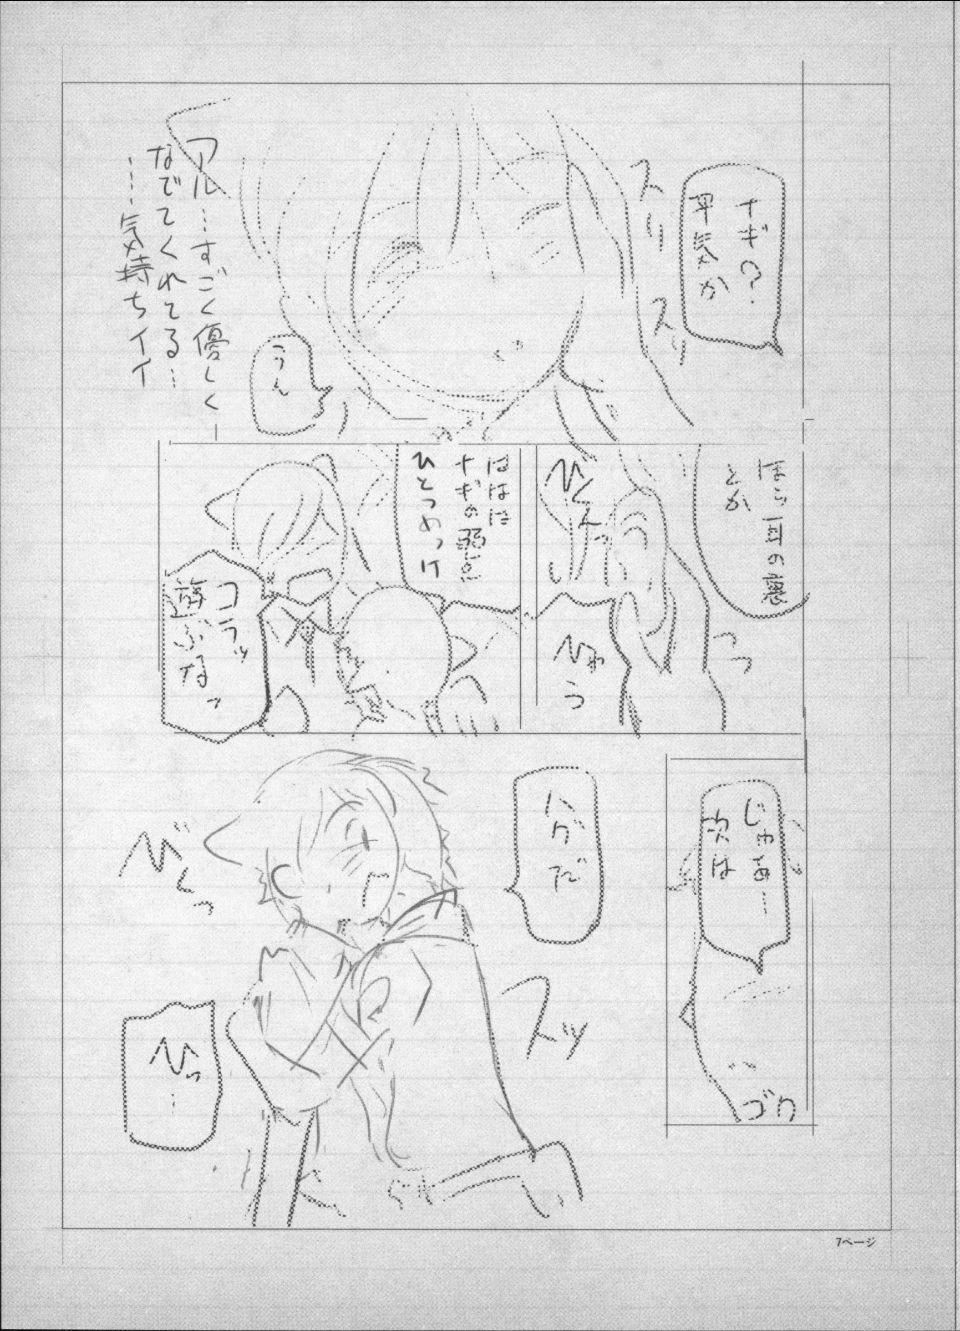 ナギ?
平気か
スリ
スリ
うん
アル…すごく優しく
なでてくれてる…
……気持ちイイ
ほら耳の裏
とか
ひくんっ
ひゃう
ははは
ナギの弱点
ひとつめっけ
コラッ
遊ぶなッ
じゃあ…
次は
ゴク
ハグだ
スッ
びくっ
ひっ…
7ページ